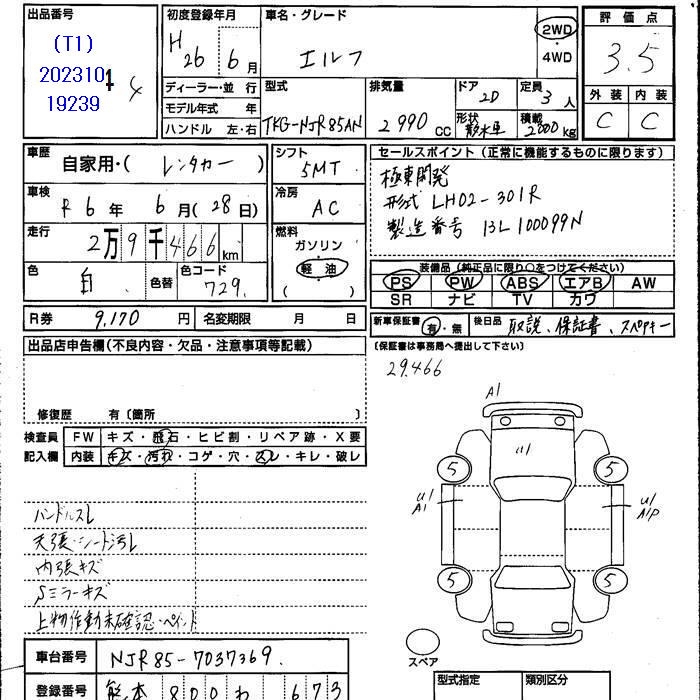 出品番号
(T1)
202310 4
19239
初度登録年月
H 26年 6月
車名・グレード
エルフ
2WD
・
4WD
評価点
3.5
外装 内装
C C
ディーラー・並行
モデル年式 年
ハンドル 左・右
型式
TKG-NJR85AN
排気量
2990 CC
ドア
2D
定員
3人
形状
散水車
積載
2000kg
車歴
自家用・(レンタカー)
車検
R 6年 6月(28日)
走行
2万9千466km
色
白
色替
色コード
729
シフト
5MT
冷房
AC
燃料
ガソリン
軽油
( )
セールスポイント(正常に機能するものに限ります)
極東開発
形式 LH02-301R
製造番号 13L100099N
装備品(純正品に限り○をつけてください)
PS PW ABS エアB AW
SR ナビ TV カワ
R券 9,170円
名変期限 月 日
新車保証書 有・無
後日品 取説、保証書、スペアキー
(保証書は事務局へ提出して下さい)
29,466
出品店申告欄(不良内容・欠品・注意事項等記載)
修復歴 有〔箇所 〕
検査員 FW キズ・飛石・ヒビ割・リペア跡・X要
記入欄 内装 キズ・汚れ・コゲ・穴・スレ・キレ・破レ
ハンドルスレ
天張・シート汚レ
内張キズ
Sミラーキズ
上物作動未確認・ペイント
A1
U1
5 5
U1 U1
A1 A1P
5 5
スペア
車台番号 NJR85-7037369
登録番号 熊本 800 わ 673
型式指定 類別区分